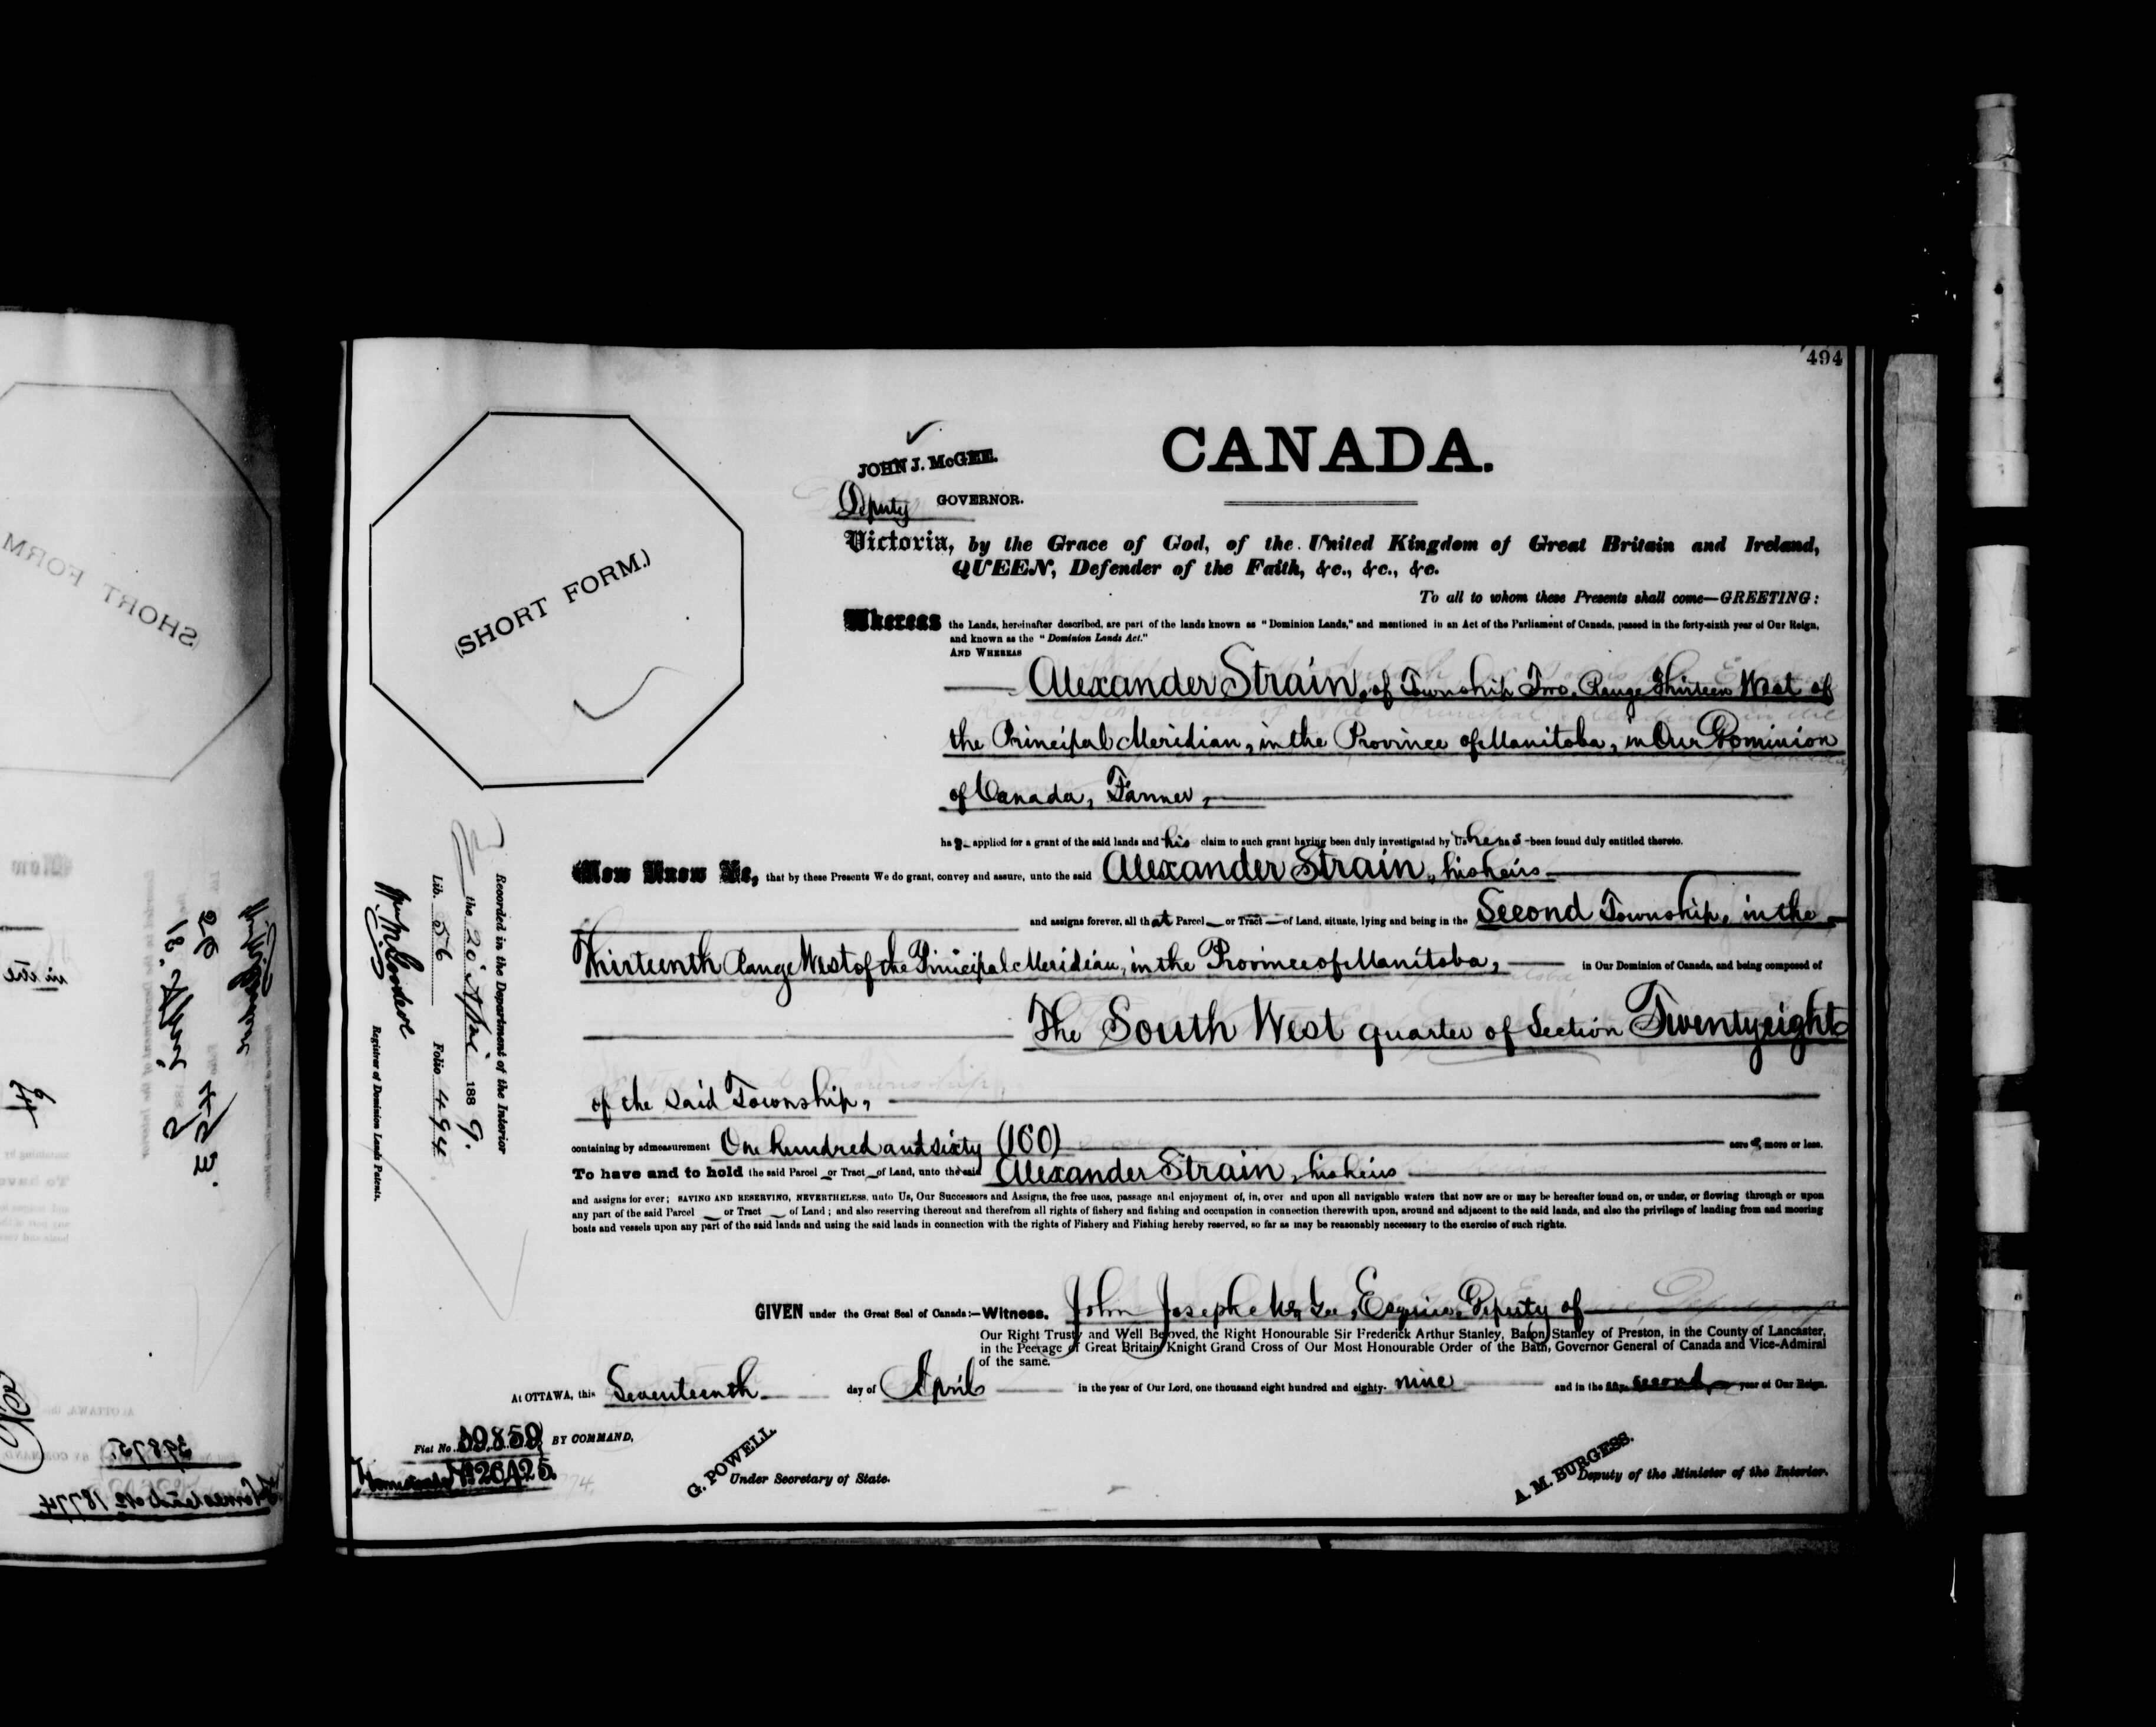 494
CANADA.
JOHN J. McGEE.
Deputy GOVERNOR.
(SHORT FORM.)
Victoria, by the Grace of God, of the United Kingdom of Great Britain and Ireland,
QUEEN, Defender of the Faith, &c., &c., &c.
To all to whom these Presents shall come—GREETING:
Whereas the Lands, hereinafter described, are part of the lands known as "Dominion Lands," and mentioned in an Act of the Parliament of Canada, passed in the forty-sixth year of Our Reign,
and known as the "Dominion Lands Act."
AND WHEREAS
Alexander Strain, of Township Two, Range Thirteen West of
the Principal Meridian, in the Province of Manitoba, in Our Dominion
of Canada, Farmer,
has applied for a grant of the said lands and his claim to such grant having been duly investigated by Us he has been found duly entitled thereto.
Now Know Ye, that by these Presents We do grant, convey and assure, unto the said Alexander Strain, his heirs
and assigns forever, all that Parcel or Tract of Land, situate, lying and being in the Second Township, in the
Thirteenth Range West of the Principal Meridian, in the Province of Manitoba, in Our Dominion of Canada, and being composed of
The South West quarter of Section Twenty eight
of the said Township,
containing by admeasurement One hundred and sixty (160) acres, more or less.
To have and to hold the said Parcel or Tract of Land, unto the said Alexander Strain, his heirs
and assigns for ever; SAVING AND RESERVING, NEVERTHELESS, unto Us, Our Successors and Assigns, the free uses, passage and enjoyment of, in, over and upon all navigable waters that now are or may be hereafter found on, or under, or flowing through or upon
any part of the said Parcel or Tract of Land; and also reserving thereout and therefrom all rights of fishery and fishing and occupation in connection therewith upon, around and adjacent to the said lands, and also the privilege of landing from and mooring
boats and vessels upon any part of the said lands and using the said lands in connection with the rights of Fishery and Fishing hereby reserved, so far as may be reasonably necessary to the exercise of such rights.
GIVEN under the Great Seal of Canada:—Witness, John Joseph McGee, Esquire, Deputy of
Our Right Trusty and Well Beloved, the Right Honourable Sir Frederick Arthur Stanley, Baron Stanley of Preston, in the County of Lancaster,
in the Peerage of Great Britain, Knight Grand Cross of Our Most Honourable Order of the Bath, Governor General of Canada and Vice-Admiral
of the same.
At OTTAWA, this Seventeenth day of April in the year of Our Lord, one thousand eight hundred and eighty-nine and in the fifty second year of Our Reign.
Fiat No. 39859 BY COMMAND,
Homestead No 26425.
G. POWELL
Under Secretary of State.
A. M. BURGESS.
Deputy of the Minister of the Interior.
Recorded in the Department of the Interior
the 20 April 1889.
Lib. 56 Folio 494
Registrar of Dominion Lands Patents.